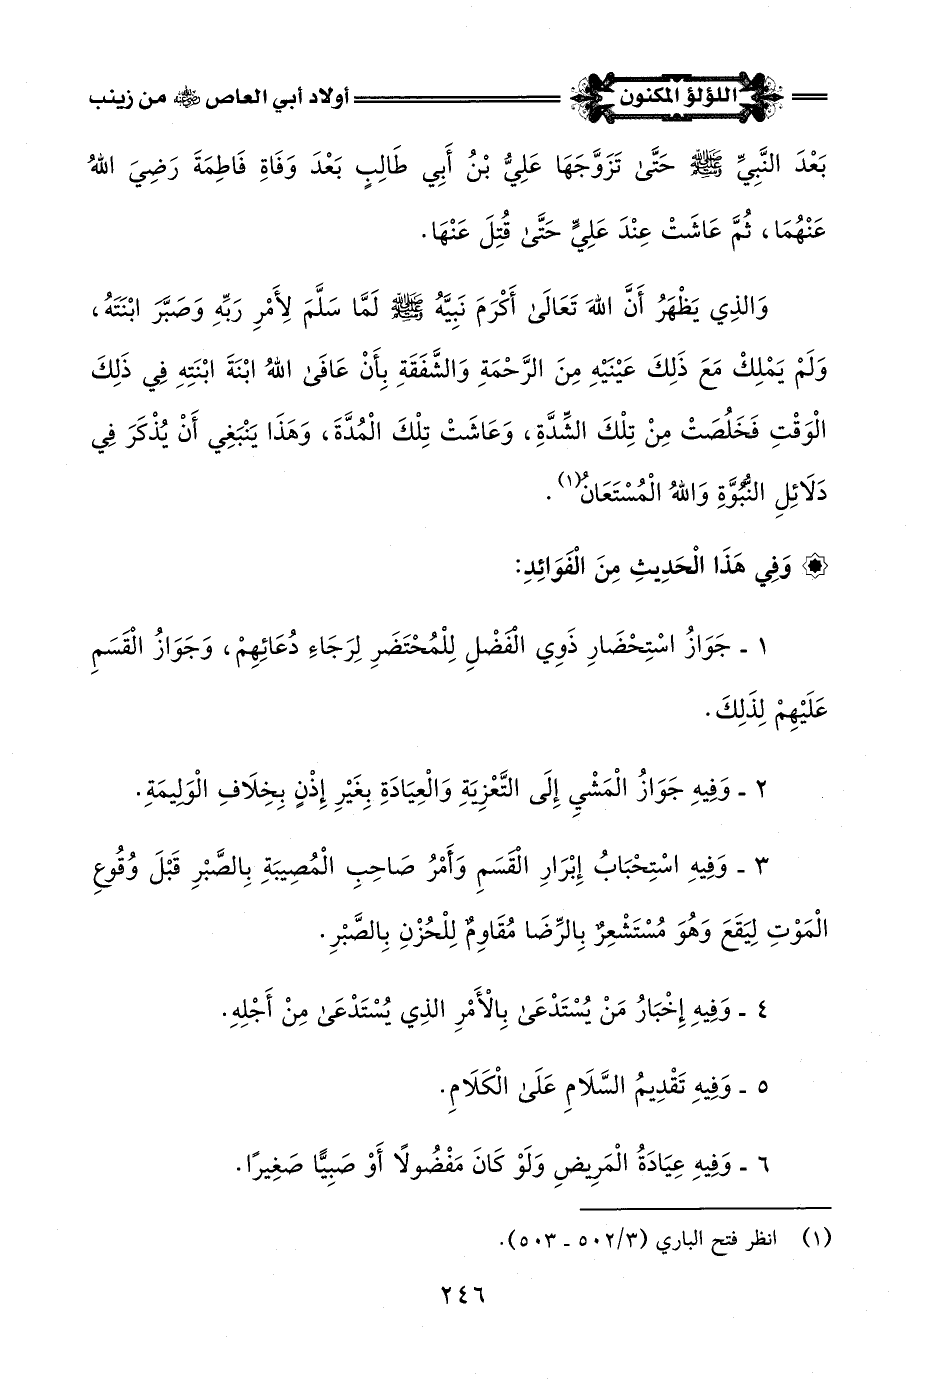 اللؤلؤ المكنون أولاد أبي العاص رضي الله عنه من زينب
بَعْدَ النَّبِيِّ ﷺ حَتَّىٰ تَزَوَّجَهَا عَلِيُّ بْنُ أَبِي طَالِبٍ بَعْدَ وَفَاةِ فَاطِمَةَ رَضِيَ اللهُ
عَنْهُمَا، ثُمَّ عَاشَتْ عِنْدَ عَلِيٍّ حَتَّىٰ قُتِلَ عَنْهَا.
وَالذِي يَظْهَرُ أَنَّ اللهَ تَعَالَىٰ أَكْرَمَ نَبِيَّهُ ﷺ لَمَّا سَلَّمَ لِأَمْرِ رَبِّهِ وَصَبَّرَ ابْنَتَهُ،
وَلَمْ يَمْلِكْ مَعَ ذَلِكَ عَيْنَيْهِ مِنَ الرَّحْمَةِ وَالشَّفَقَةِ بِأَنْ عَافَىٰ اللهُ ابْنَةَ ابْنَتِهِ فِي ذَلِكَ
الْوَقْتِ فَخَلُصَتْ مِنْ تِلْكَ الشِّدَّةِ، وَعَاشَتْ تِلْكَ الْمُدَّةَ، وَهَذَا يَنْبَغِي أَنْ يُذْكَرَ فِي
دَلَائِلِ النُّبُوَّةِ وَاللهُ الْمُسْتَعَانُ(١).
۞ وَفِي هَذَا الْحَدِيثِ مِنَ الْفَوَائِدِ:
١ ـ جَوَازُ اسْتِحْضَارِ ذَوِي الْفَضْلِ لِلْمُحْتَضَرِ لِرَجَاءِ دُعَائِهِمْ، وَجَوَازُ الْقَسَمِ
عَلَيْهِمْ لِذَلِكَ.
٢ ـ وَفِيهِ جَوَازُ الْمَشْيِ إِلَى التَّعْزِيَةِ وَالْعِيَادَةِ بِغَيْرِ إِذْنٍ بِخِلَافِ الْوَلِيمَةِ.
٣ ـ وَفِيهِ اسْتِحْبَابُ إِبْرَارِ الْقَسَمِ وَأَمْرُ صَاحِبِ الْمُصِيبَةِ بِالصَّبْرِ قَبْلَ وُقُوعِ
الْمَوْتِ لِيَقَعَ وَهُوَ مُسْتَشْعِرٌ بِالرِّضَا مُقَاوِمٌ لِلْحُزْنِ بِالصَّبْرِ.
٤ ـ وَفِيهِ إِخْبَارُ مَنْ يُسْتَدْعَىٰ بِالْأَمْرِ الذِي يُسْتَدْعَىٰ مِنْ أَجْلِهِ.
٥ ـ وَفِيهِ تَقْدِيمُ السَّلَامِ عَلَىٰ الْكَلَامِ.
٦ ـ وَفِيهِ عِيَادَةُ الْمَرِيضِ وَلَوْ كَانَ مَفْضُولًا أَوْ صَبِيًّا صَغِيرًا.
(١) انظر فتح الباري (٣/ ٥٠٢ ـ ٥٠٣).
٢٤٦